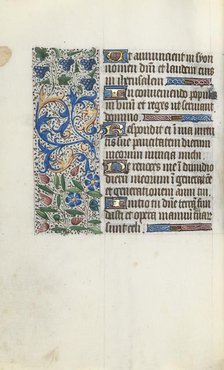 Ut annuncient in syon
nomen dni et laudem eius
in iherusalem
In conveniendo populos
in unum et reges ut serviant
domino
Respondit ei in via virtu
tis sue paucitatem dierum
meorum nuncia michi
Ne revoces me in dimidio
dierum meorum in generacione
et generationem anni tui
Initio tu dne terram fun
dasti et opera manuum tuarum
sunt celi